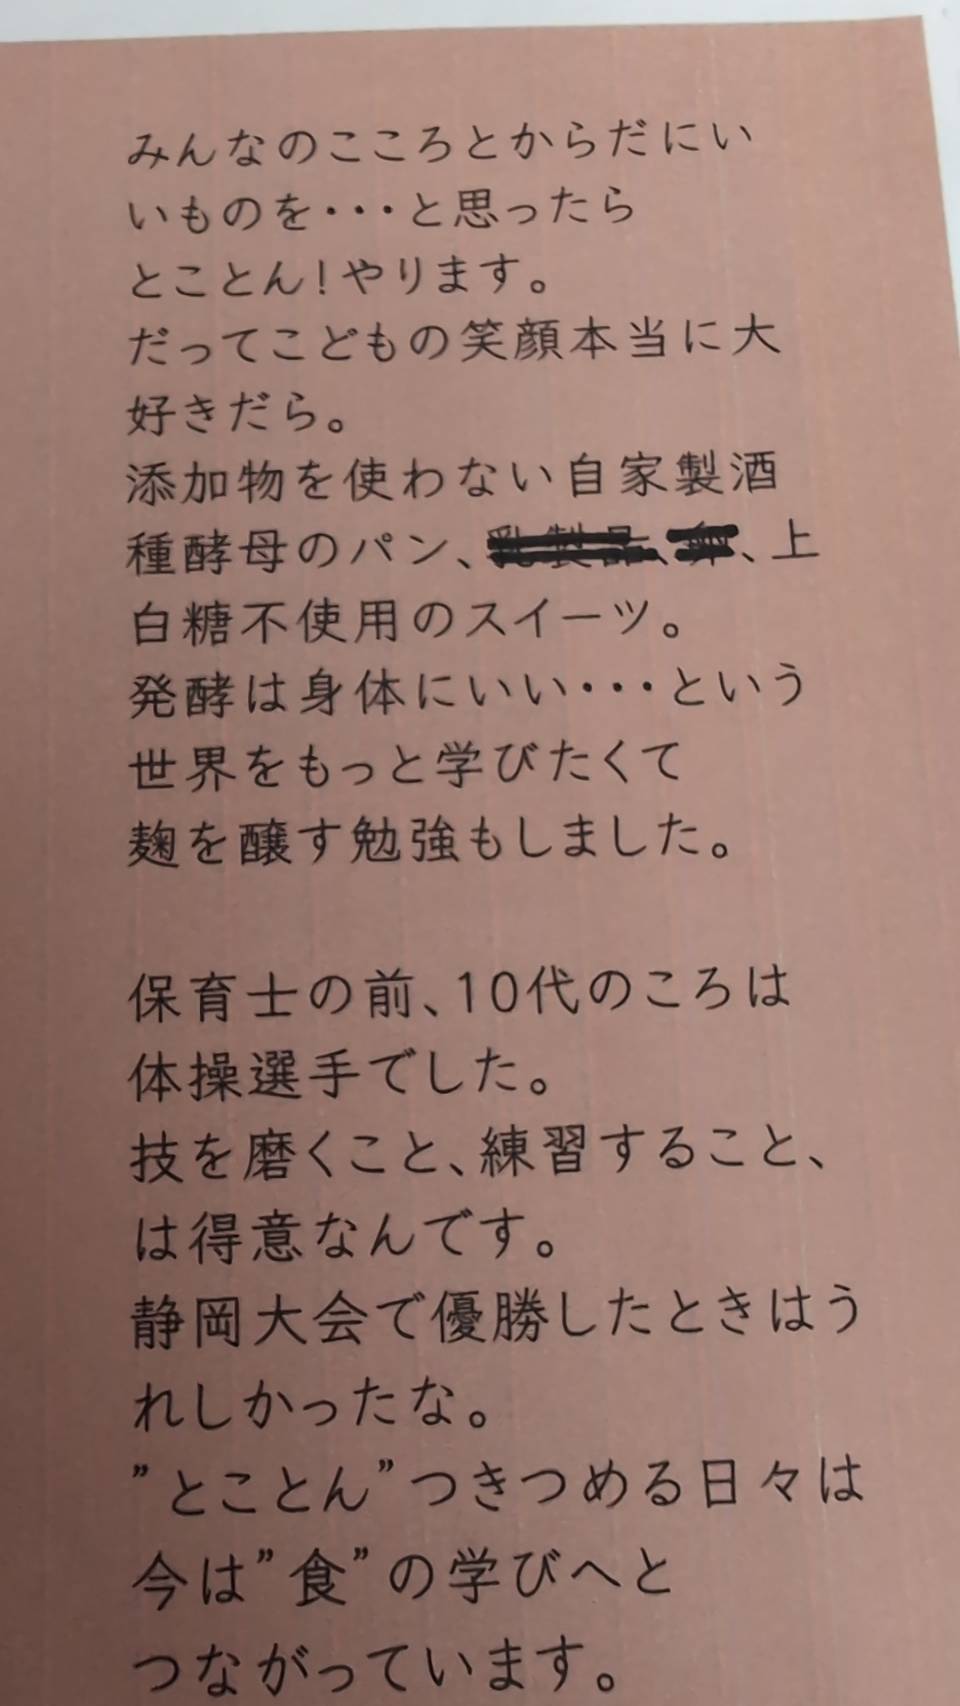 みんなのこころとからだにい
いものを・・・と思ったら
とことん!やります。
だってこどもの笑顔本当に大
好きだら。
添加物を使わない自家製酒
種酵母のパン、乳製品、卵、上
白糖不使用のスイーツ。
発酵は身体にいい・・・という
世界をもっと学びたくて
麹を醸す勉強もしました。
保育士の前、10代のころは
体操選手でした。
技を磨くこと、練習すること、
は得意なんです。
静岡大会で優勝したときはう
れしかったな。
”とことん”つきつめる日々は
今は”食”の学びへと
つながっています。